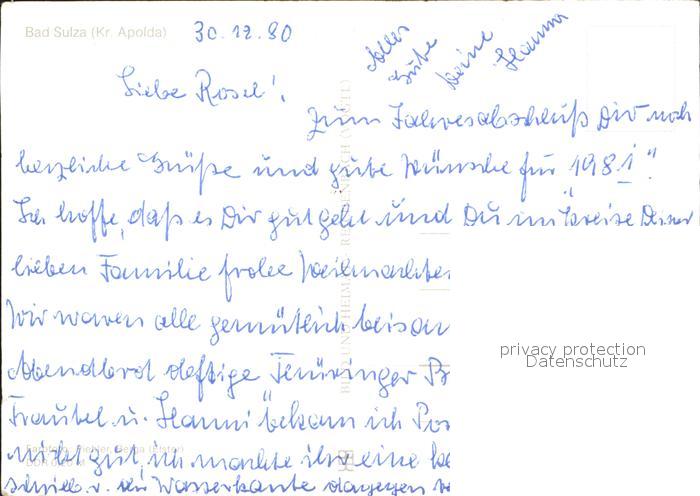 Bad Sulza (Kr. Apolda)
30.12.80
Alles
Gute
Deine Hanni
Liebe Rosel!
Zum Jahresabschluß Dir noch
herzliche Grüße und gute Wünsche für "1981".
Ich hoffe, daß es Dir gut geht und Du im Kreise Deiner
lieben Familie frohe Weihnachten
Wir waren alle gemütlich beisam
Abendbrot deftige Thüringer Br
Trautel u. Hanni bekam ich Pos
nicht gut, ich machte ihr eine
schrieb v. der Wasserkante dagegen
BILD UND HEIMAT REICHENBACH (VOGTL)
privacy protection
Datenschutz